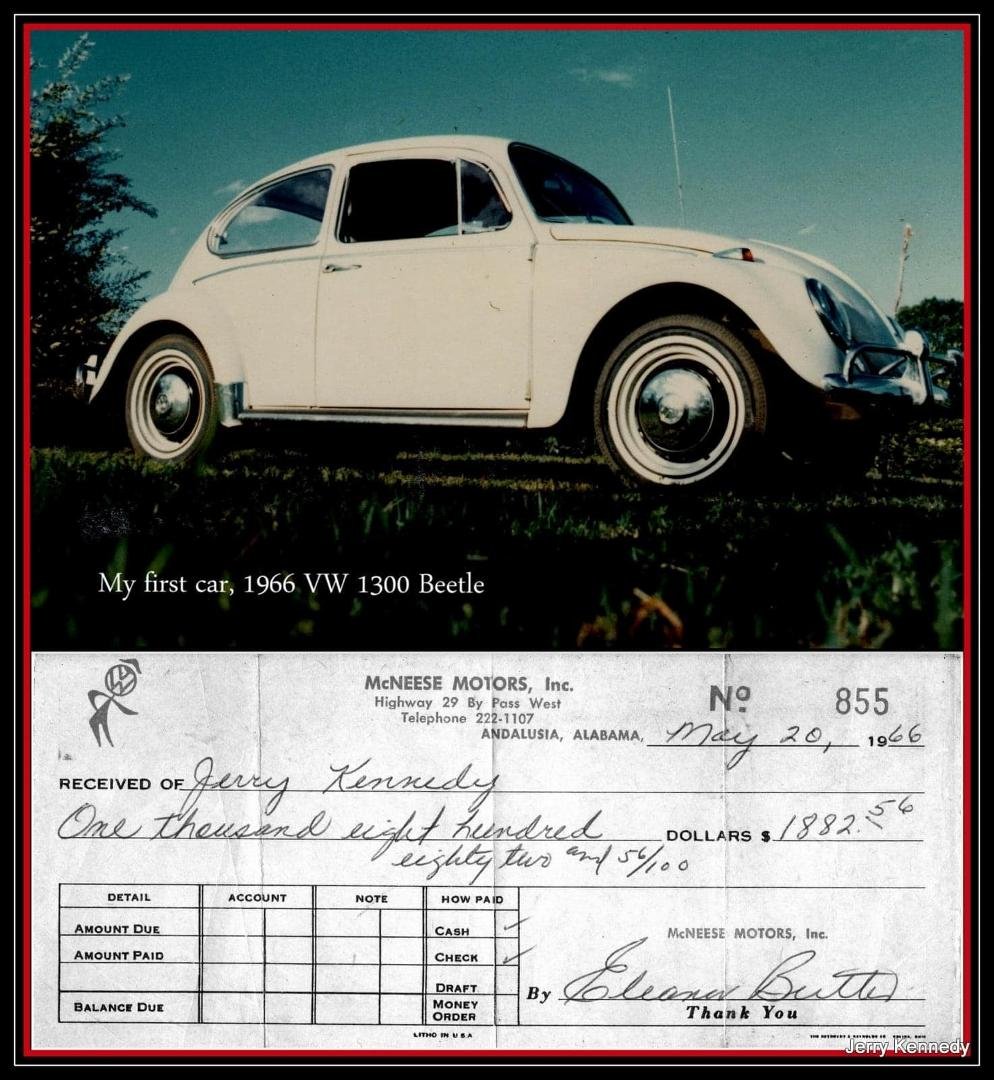 My first car, 1966 VW 1300 Beetle
McNEESE MOTORS, Inc.
Highway 29 By Pass West
Telephone 222-1107
ANDALUSIA, ALABAMA, May 20, 1966
Nº 855
RECEIVED OF Jerry Kennedy
One thousand eight hundred DOLLARS $ 1882.56
eighty two and 56/100
DETAIL ACCOUNT NOTE HOW PAID
AMOUNT DUE CASH ✓
AMOUNT PAID CHECK ✓
DRAFT
BALANCE DUE MONEY ORDER
McNEESE MOTORS, Inc.
By Eleanor
Thank You
LITHO IN U S A
Jerry Kennedy